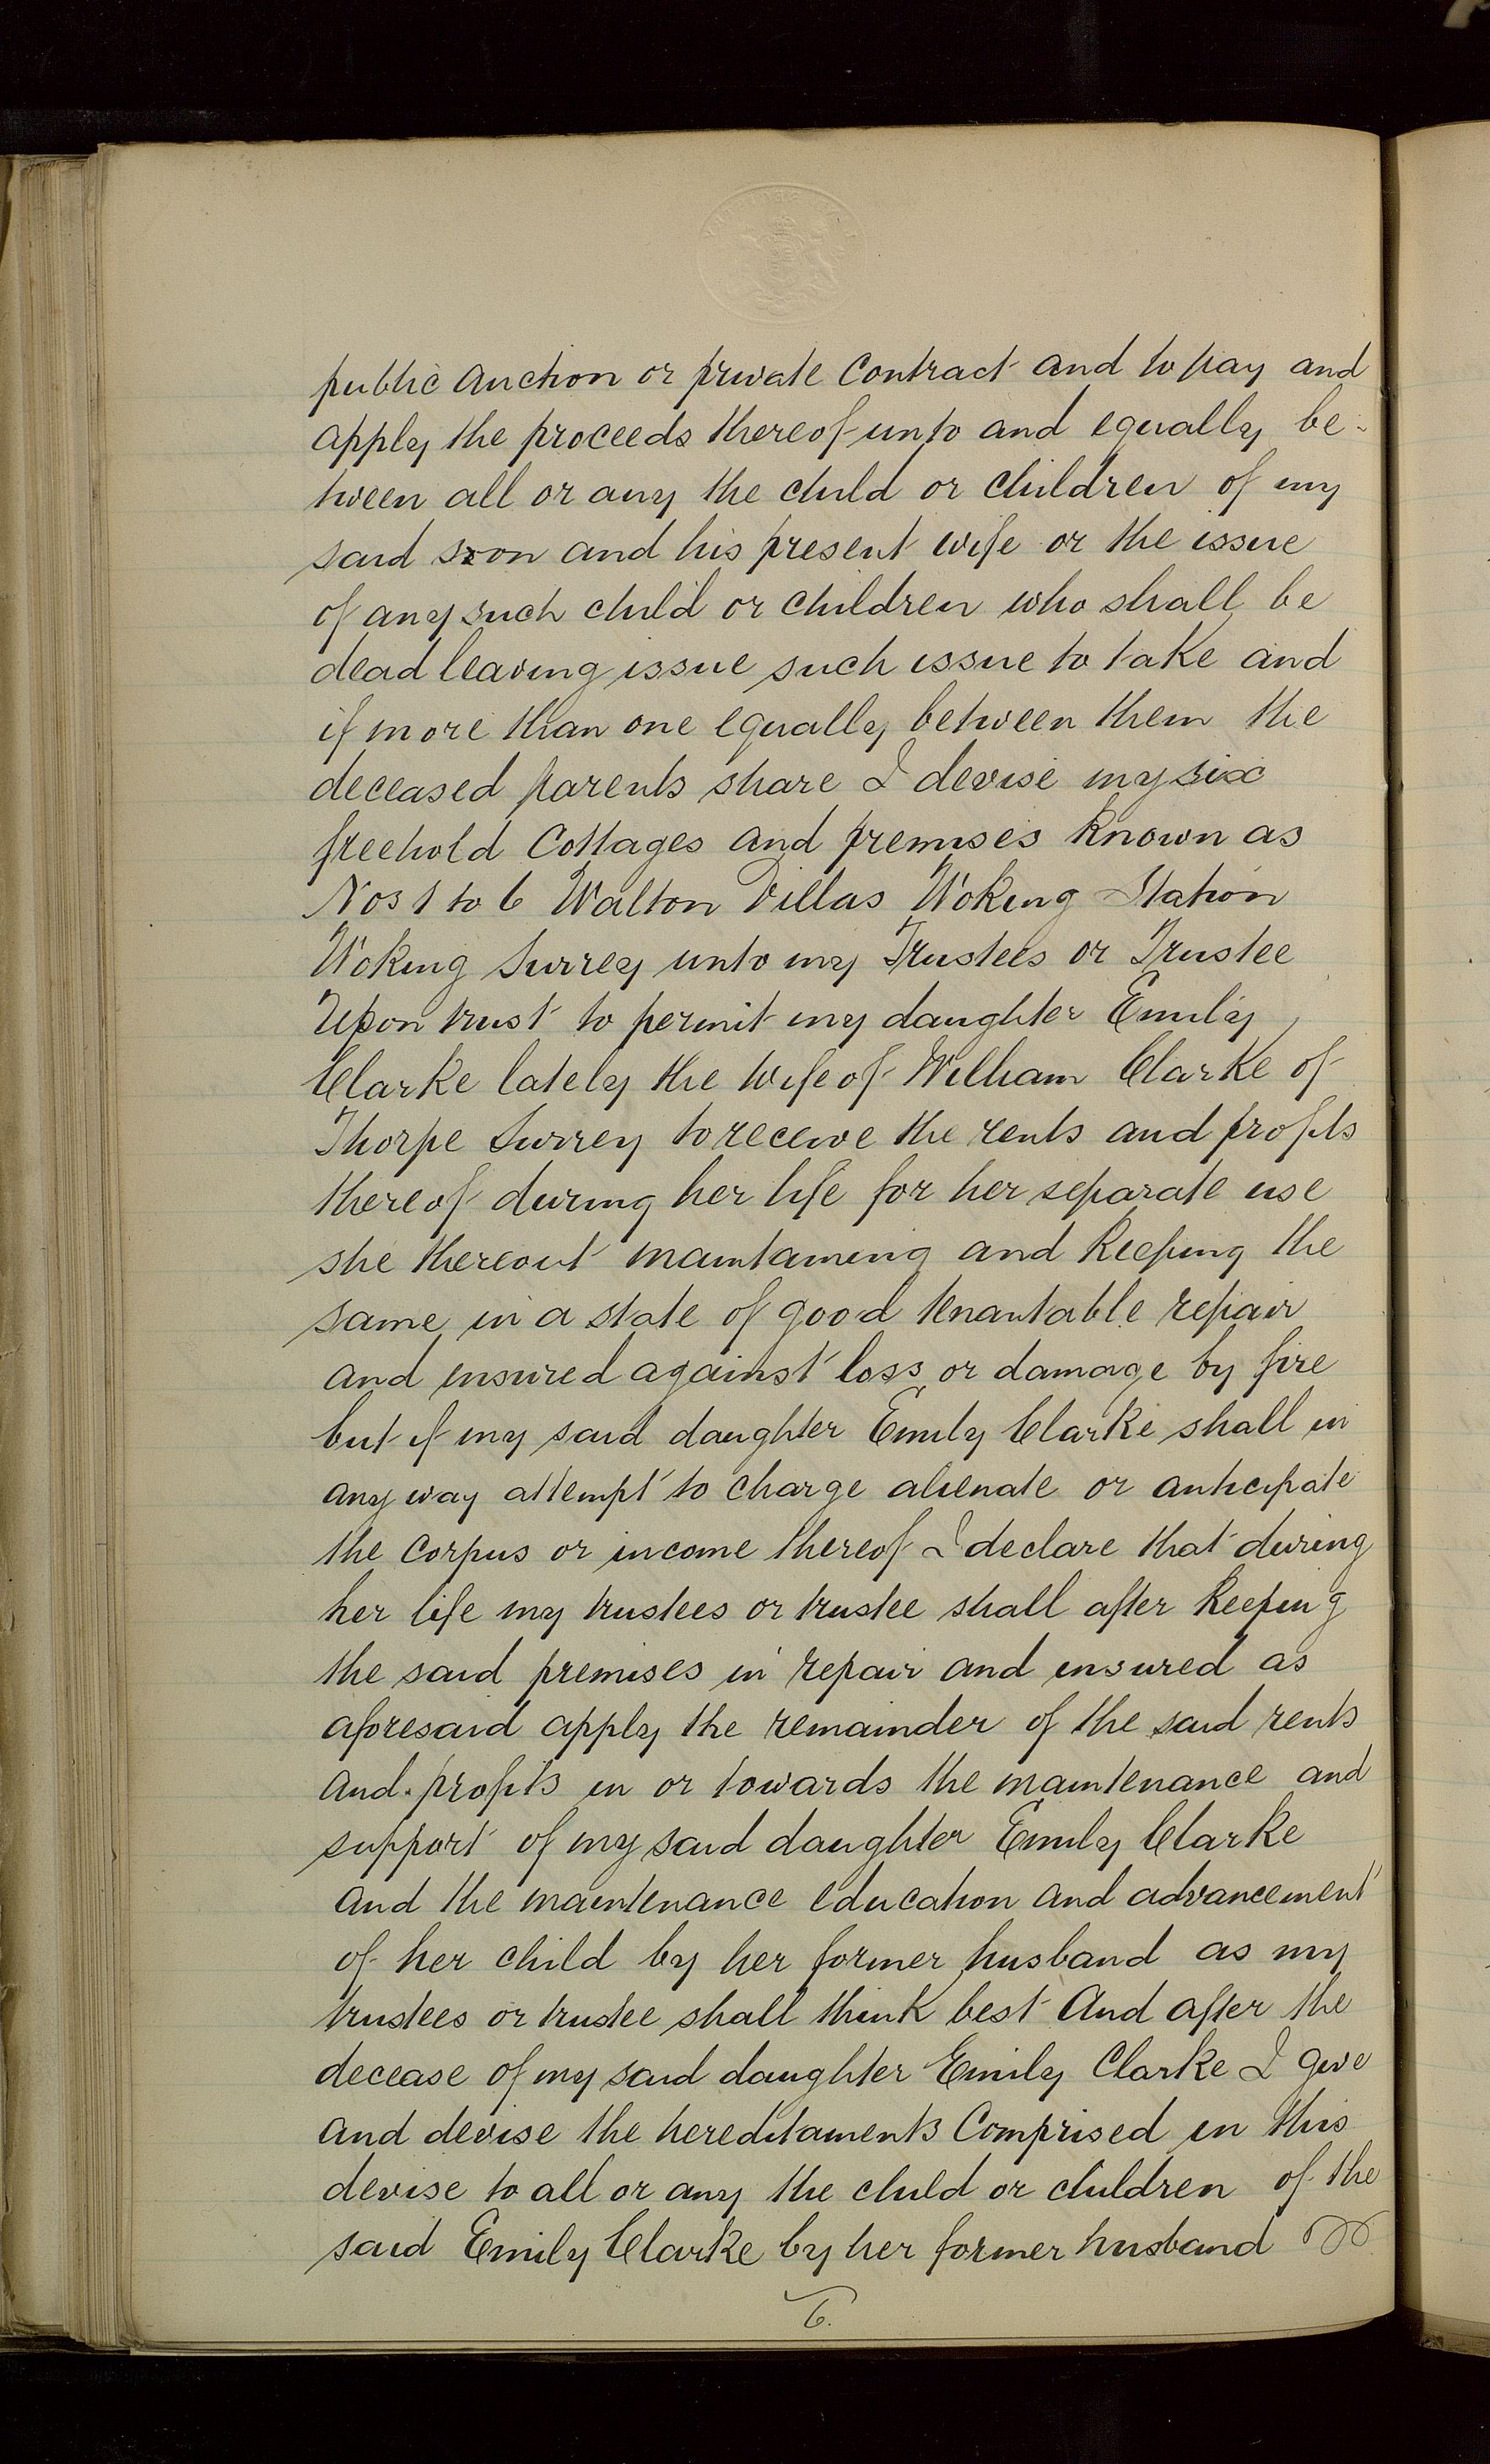 public auction or private Contract and to pay and
apply the proceeds thereof unto and equally be-
tween all or any the child or children of my
said son and his present wife or the issue
of any such child or children who shall be
dead leaving issue such issue to take and
if more than one equally between them the
deceased parents share I devise my six
freehold Cottages and premises known as
Nos 1 to 6 Walton Villas Woking Station
Woking Surrey unto my Trustees or Trustee
Upon trust to permit my daughter Emily
Clarke lately the wife of William Clarke of
Thorpe Surrey to receive the rents and profits
thereof during her life for her separate use
she thereout maintaining and keeping the
same in a state of good tenantable repair
and insured against loss or damage by fire
but if my said daughter Emily Clarke shall in
any way attempt to charge alienate or anticipate
the corpus or income thereof I declare that during
her life my trustees or trustee shall after keeping
the said premises in repair and insured as
aforesaid apply the remainder of the said rents
and profits in or towards the maintenance and
support of my said daughter Emily Clarke
and the maintenance education and advancement
of her child by her former husband as my
trustees or trustee shall think best And after the
decease of my said daughter Emily Clarke I give
and devise the hereditaments Comprised in this
devise to all or any the child or children of the
said Emily Clarke by her former husband
6.